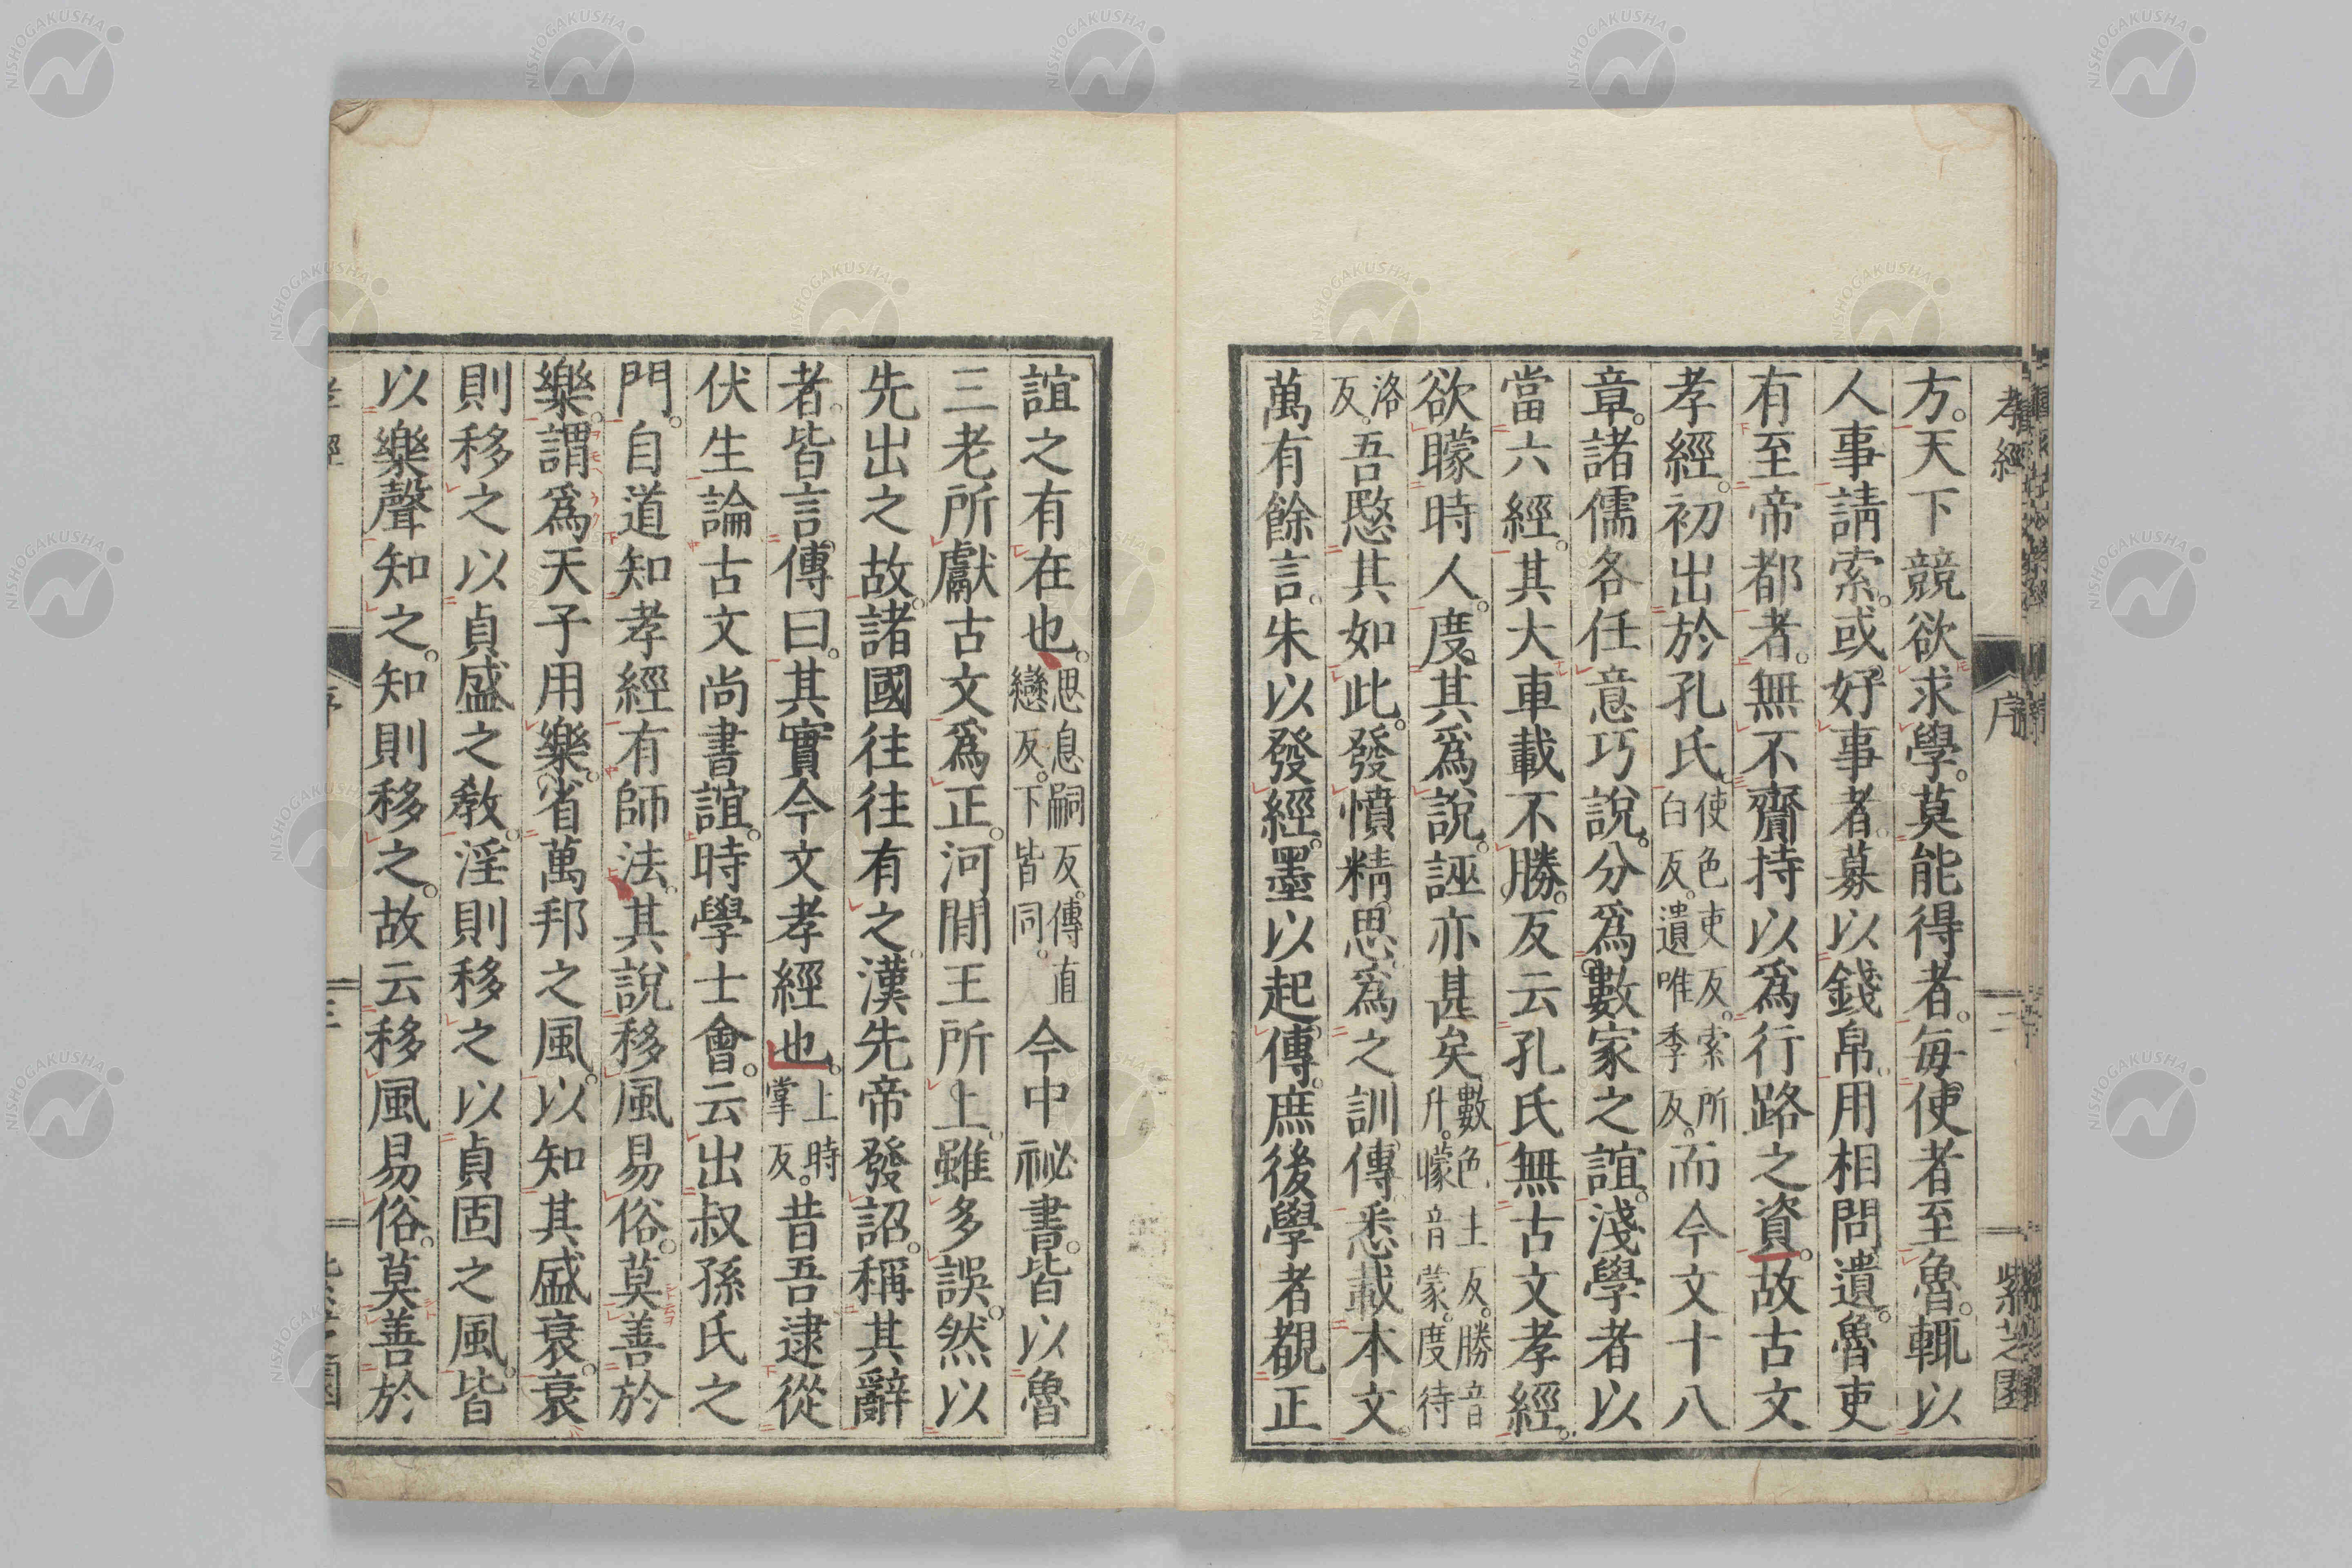 孝經 序 二 紫芝園
方。天下競欲求學。莫能得者。每使者至魯。輒以
人事請索。或好事者。募以錢帛。用相問遺。魯吏
有至帝都者。無不齎持以爲行路之資。故古文
孝經。初出於孔氏。使色吏反。索所白反。遺唯季反。而今文十八
章。諸儒各任意巧說。分爲數家之誼。淺學者以
當六經。其大車載不勝。反云孔氏無古文孝經。
欲矇時人。度其爲說。誣亦甚矣數色主反。勝音升。矇音蒙。度待
洛反。吾愍其如此。發憤精思。爲之訓傳。悉載本文。
萬有餘言。朱以發經。墨以起傳。庶後學者覩正
誼之有在也。思息嗣反。傳直戀反。下皆同。今中祕書。皆以魯
三老所獻古文爲正。河閒王所上。雖多誤。然以
先出之故。諸國往往有之。漢先帝發詔。稱其辭
者。皆言傳曰。其實今文孝經也。上時掌反。昔吾逮從
伏生論古文尚書誼。時學士會。云出叔孫氏之
門。自道知孝經有師法。其說移風易俗。莫善於
樂。謂爲天子用樂。省萬邦之風。以知其盛衰。衰
則移之以貞盛之教。淫則移之以貞固之風。皆
以樂聲知之。知則移之。故云移風易俗。莫善於